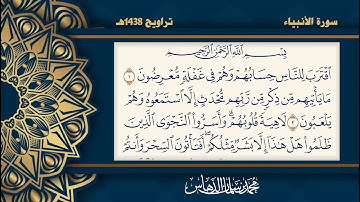 سورة الأنبياء
تراويح 1438هـ
بِسْمِ اللَّهِ الرَّحْمَٰنِ الرَّحِيمِ
اقْتَرَبَ لِلنَّاسِ حِسَابُهُمْ وَهُمْ فِي غَفْلَةٍ مُّعْرِضُونَ ١
مَا يَأْتِيهِم مِّن ذِكْرٍ مِّن رَّبِّهِم مُّحْدَثٍ إِلَّا اسْتَمَعُوهُ وَهُمْ
يَلْعَبُونَ ٢ لَاهِيَةً قُلُوبُهُمْ ۗ وَأَسَرُّوا النَّجْوَى الَّذِينَ
ظَلَمُوا هَلْ هَٰذَا إِلَّا بَشَرٌ مِّثْلُكُمْ ۖ أَفَتَأْتُونَ السِّحْرَ وَأَنتُمْ